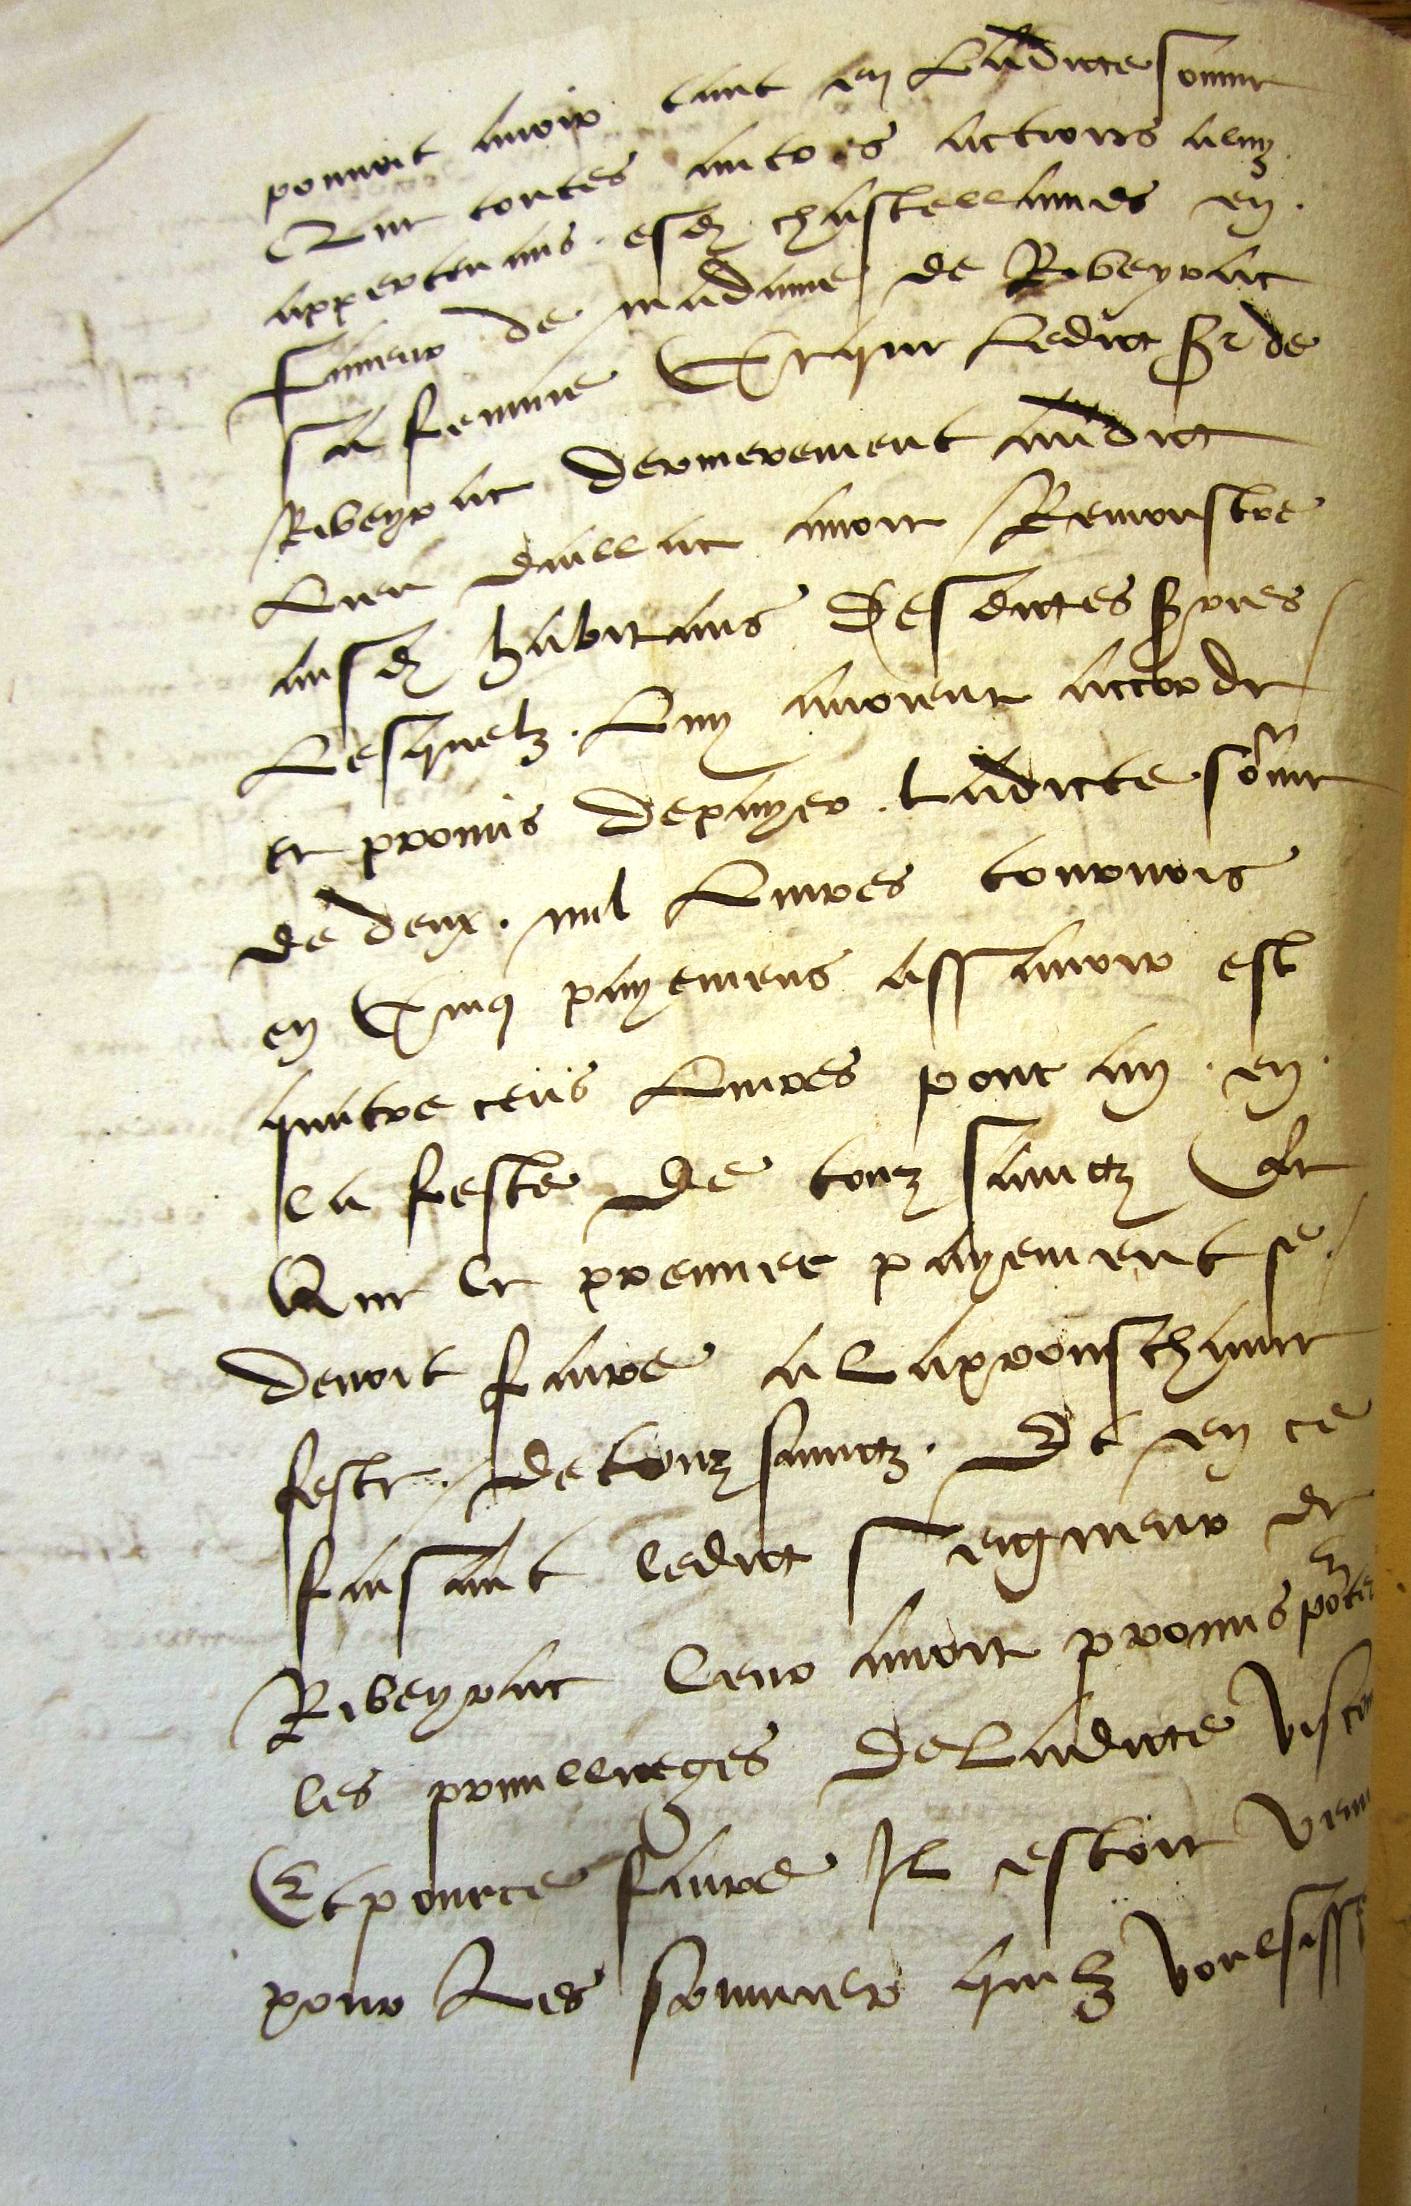 pouvoit avoir tant en ladicte somme
que toutes autres actions a eulz
appertenans esd chastellanies en
faveur de madame de Ribeyrac
sa femme Et que ledict Sr de
Ribeyrac dernierement audict
lieu daillac avoit Remonstre
ausd habitans desdictes Sries
Lesquelz luy avoient accorde
et promis depayer ladicte some
de deux mil livres tournois
en Cinq payemens assavoir est
quatre cens livres pour an en
la feste de touz sainctz Et
Que le premier payement se
devoit faire a laprouschaine
feste de touz sainctz Et en ce
faisant ledict seigneur de
Ribeyrac leur avoit promis
les privilleiges deladicte
Et pource faire Il estoit
pour les sommer quilz